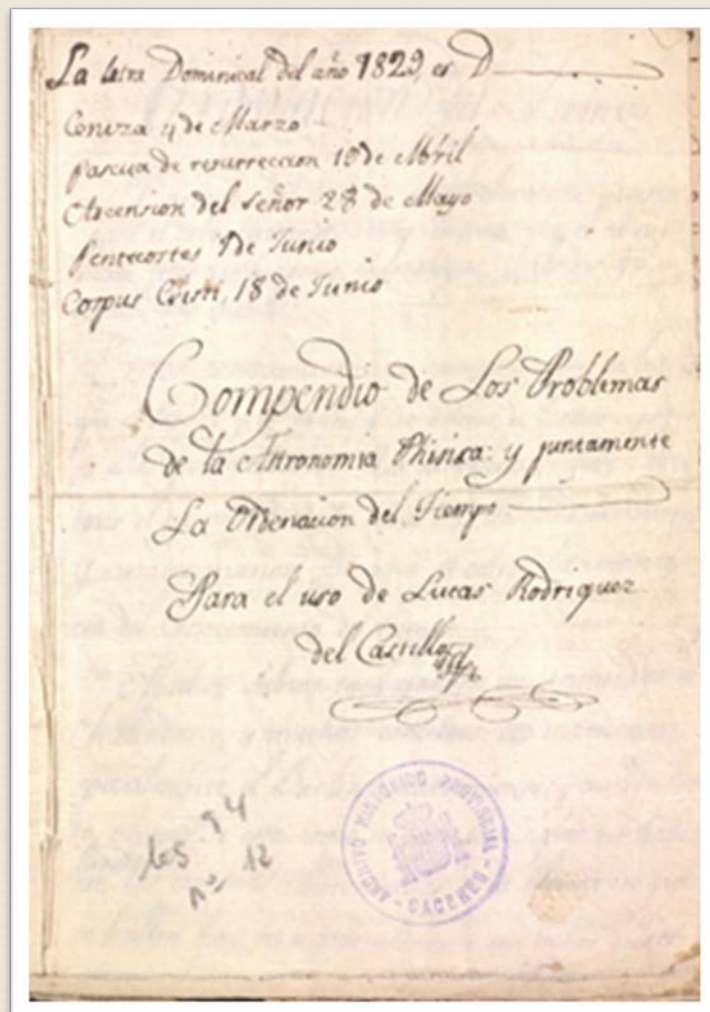 La letra Dominical del año 1829, es D
Ceniza 4 de Marzo
pascua de resurreccion 19 de Abril
Ascension del Señor 28 de Mayo
Pentecostes 7 de Junio
Corpus Cristi, 18 de Junio
Compendio de Los Problemas
de la Astronomia Phisica: y juntamente
La Ordenacion del Tiempo
Para el uso de Lucas Rodriguez
del Castillo
Leg 94
nº 12
ARCHIVO HISTORICO PROVINCIAL - CACERES -